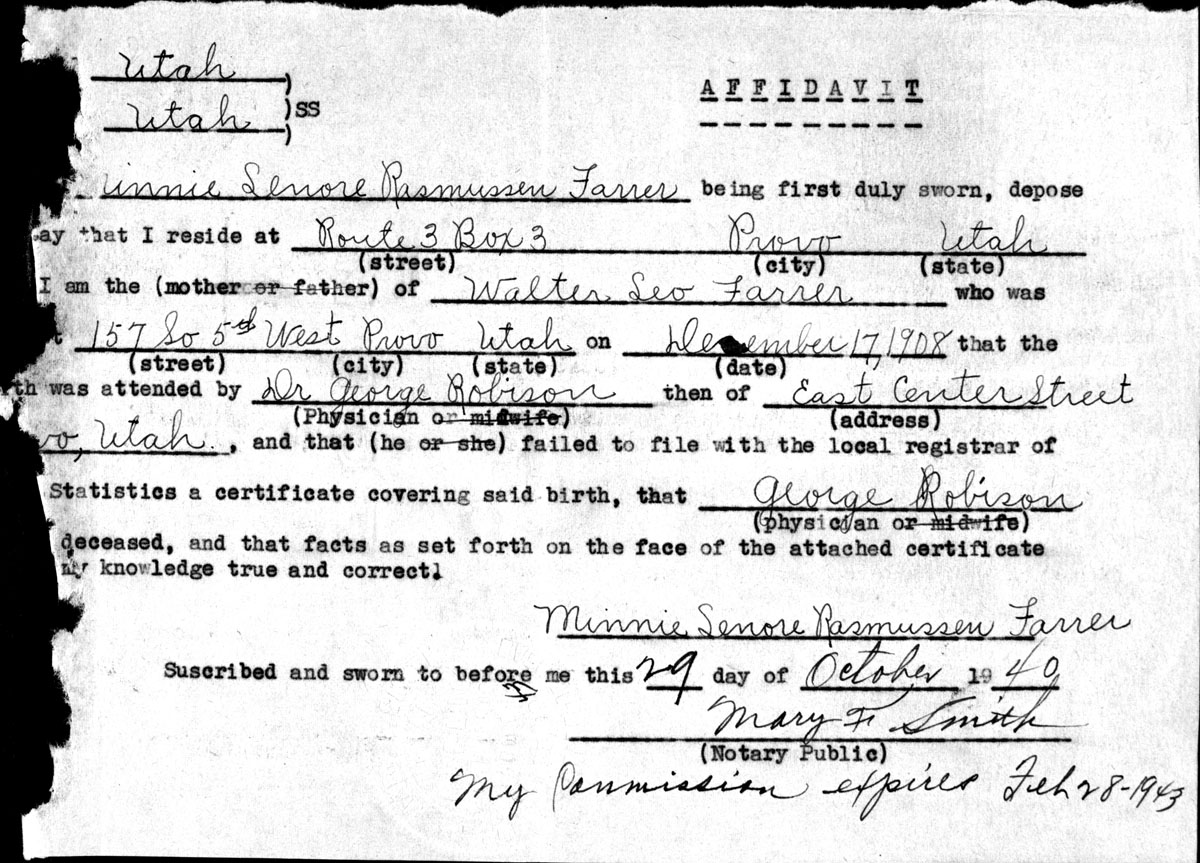 Utah )
Utah ) SS
)
AFFIDAVIT
---------
innie Lenore Rasmussen Farrer being first duly sworn, depose
ay that I reside at Route 3 Box 3 Provo Utah
(street) (city) (state)
I am the (mother or father) of Walter Leo Farrer who was
t 157 So 5th West Provo Utah on December 17, 1908 that the
(street) (city) (state) (date)
th was attended by Dr George Robison then of East Center Street
(Physician or midwife) (address)
vo, Utah , and that (he or she) failed to file with the local registrar of
Statistics a certificate covering said birth, that George Robison
(physician or midwife)
deceased, and that facts as set forth on the face of the attached certificate
my knowledge true and correct.
Minnie Lenore Rasmussen Farrer
Suscribed and sworn to before me this 29 day of October 1940
Mary F. Smith
(Notary Public)
My Commission expires Feb 28-1943